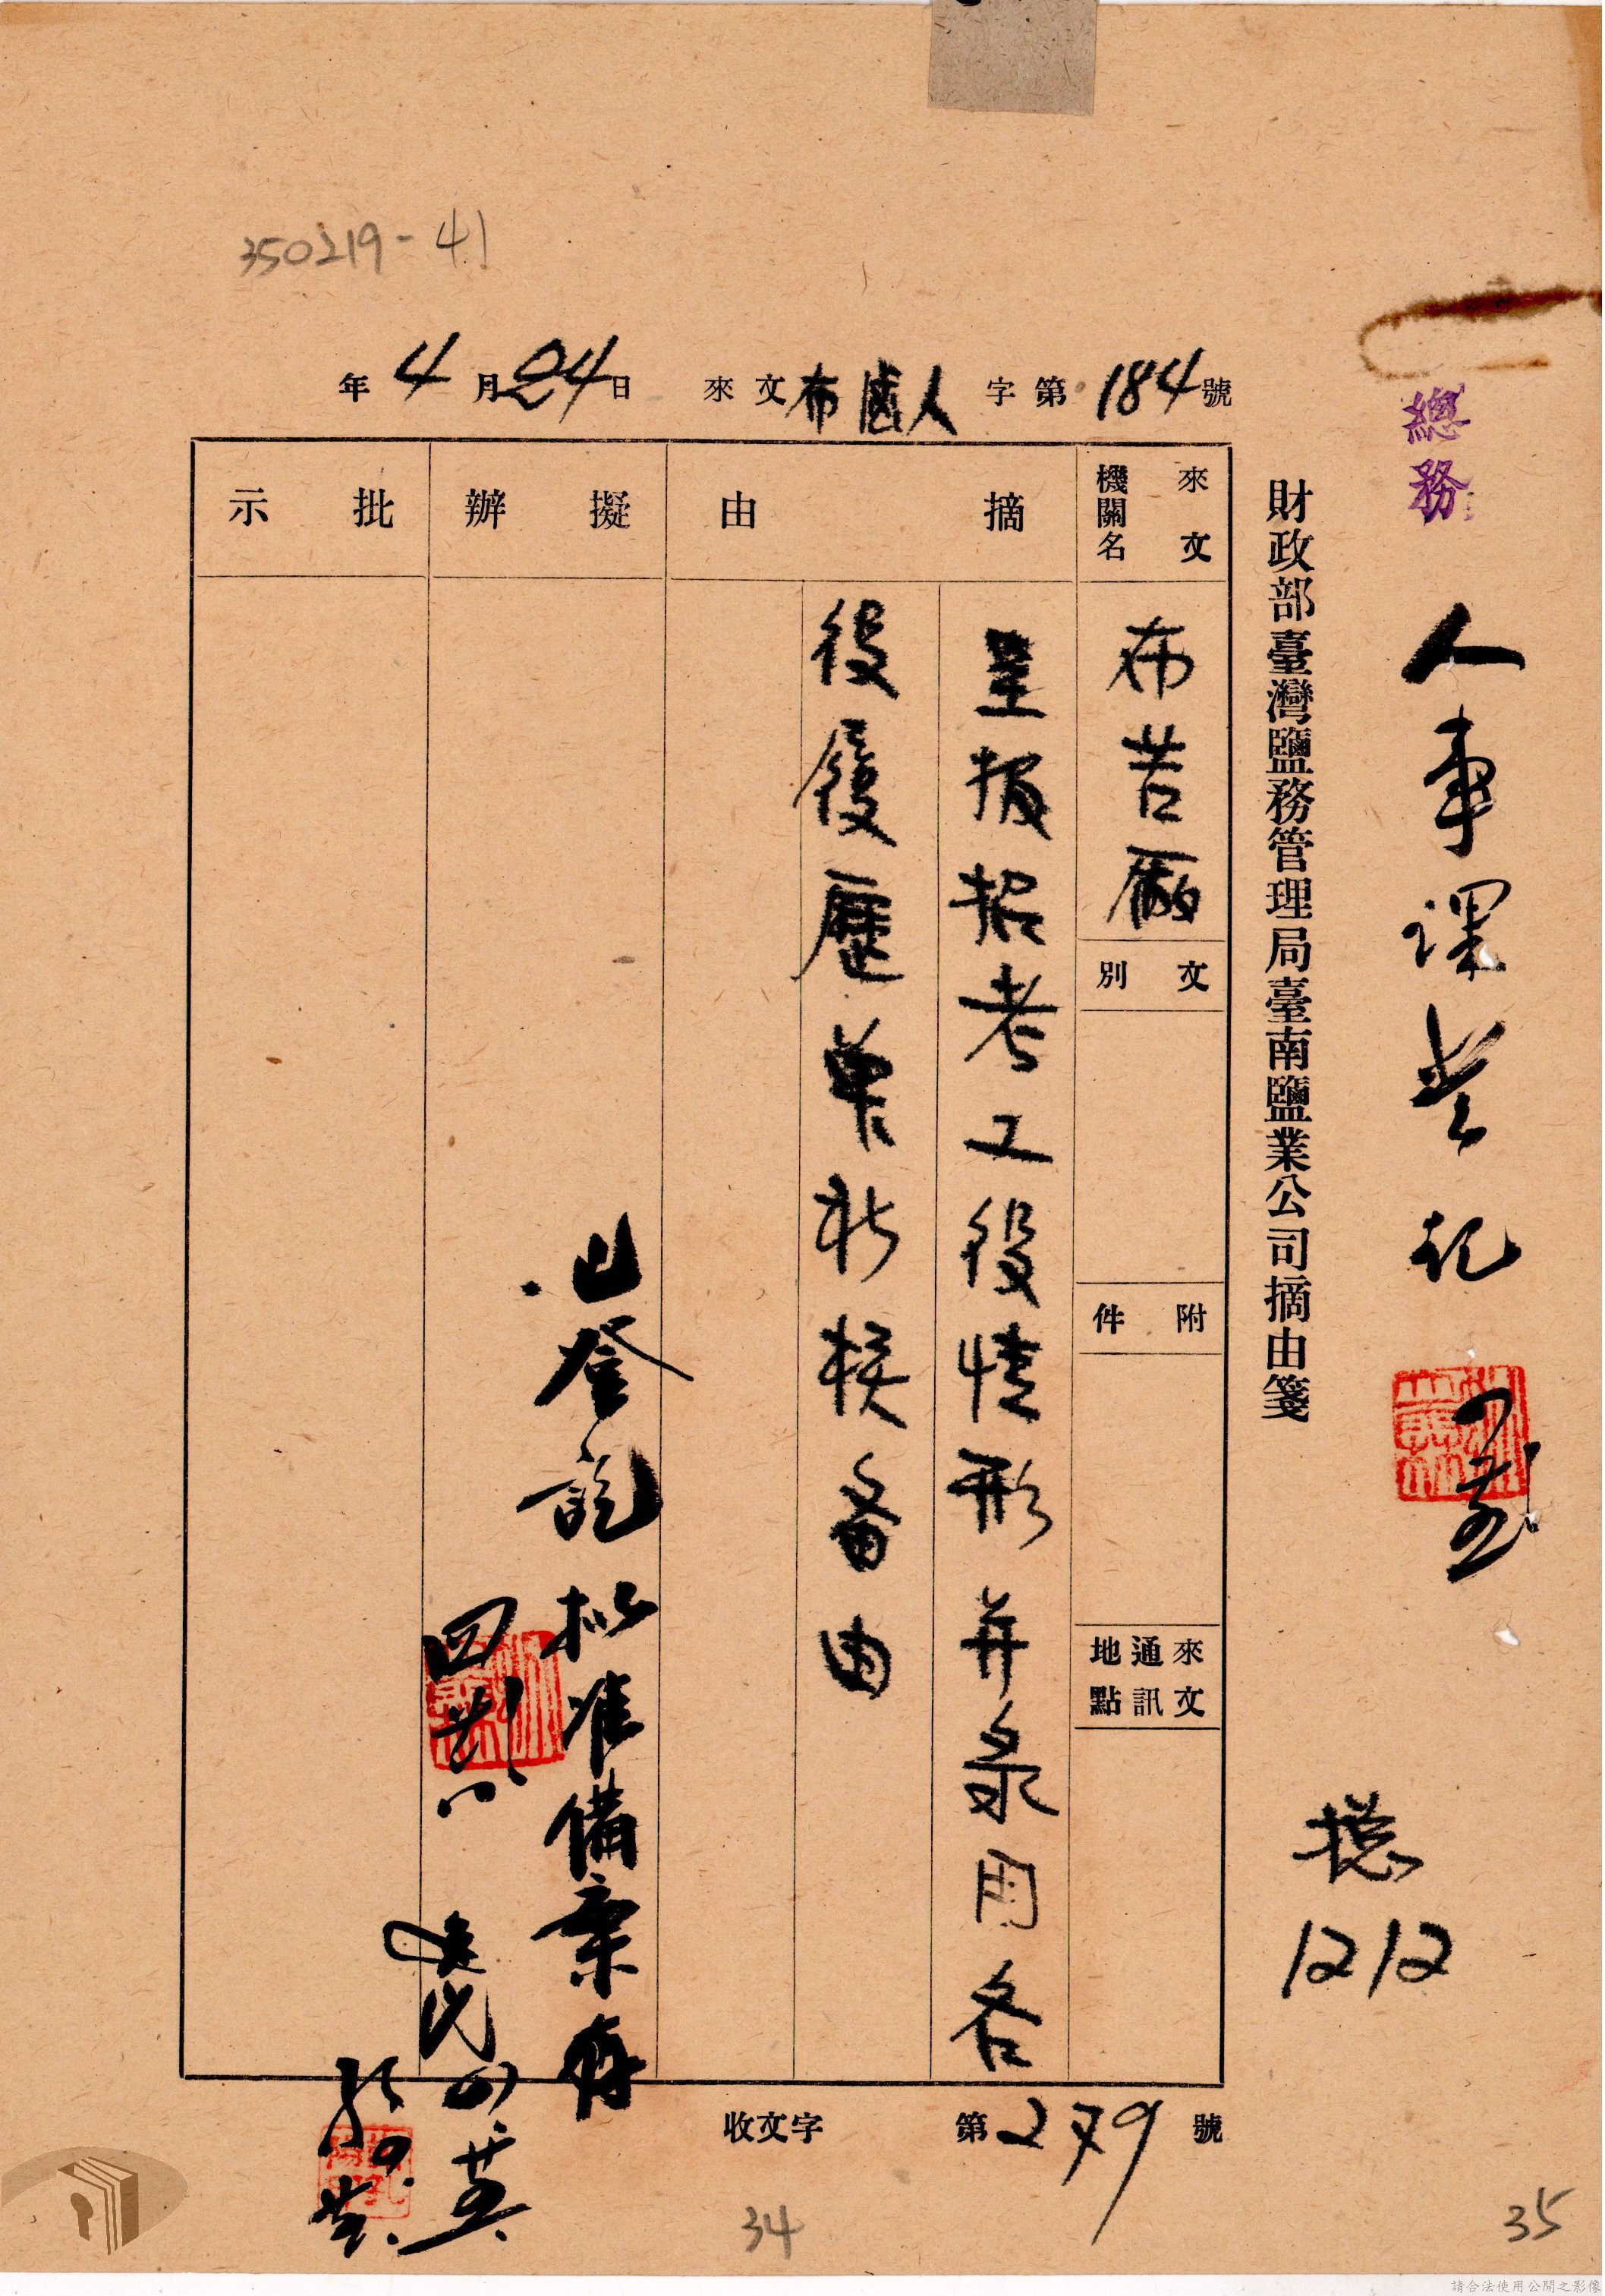 350219-41
年4月24日 來文布滷人字第184號
總務
人事課登記
財政部臺灣鹽務管理局臺南鹽業公司摘由箋
總
1212
來文機關名
布苦廠
文別
附件
來文通訊地點
摘由
呈報招考工役情形并录用各
役履歷單祈核备由
擬辦
已登記
拟准備案存
批示
收文字第279號
34
35
請合法使用公開之影像